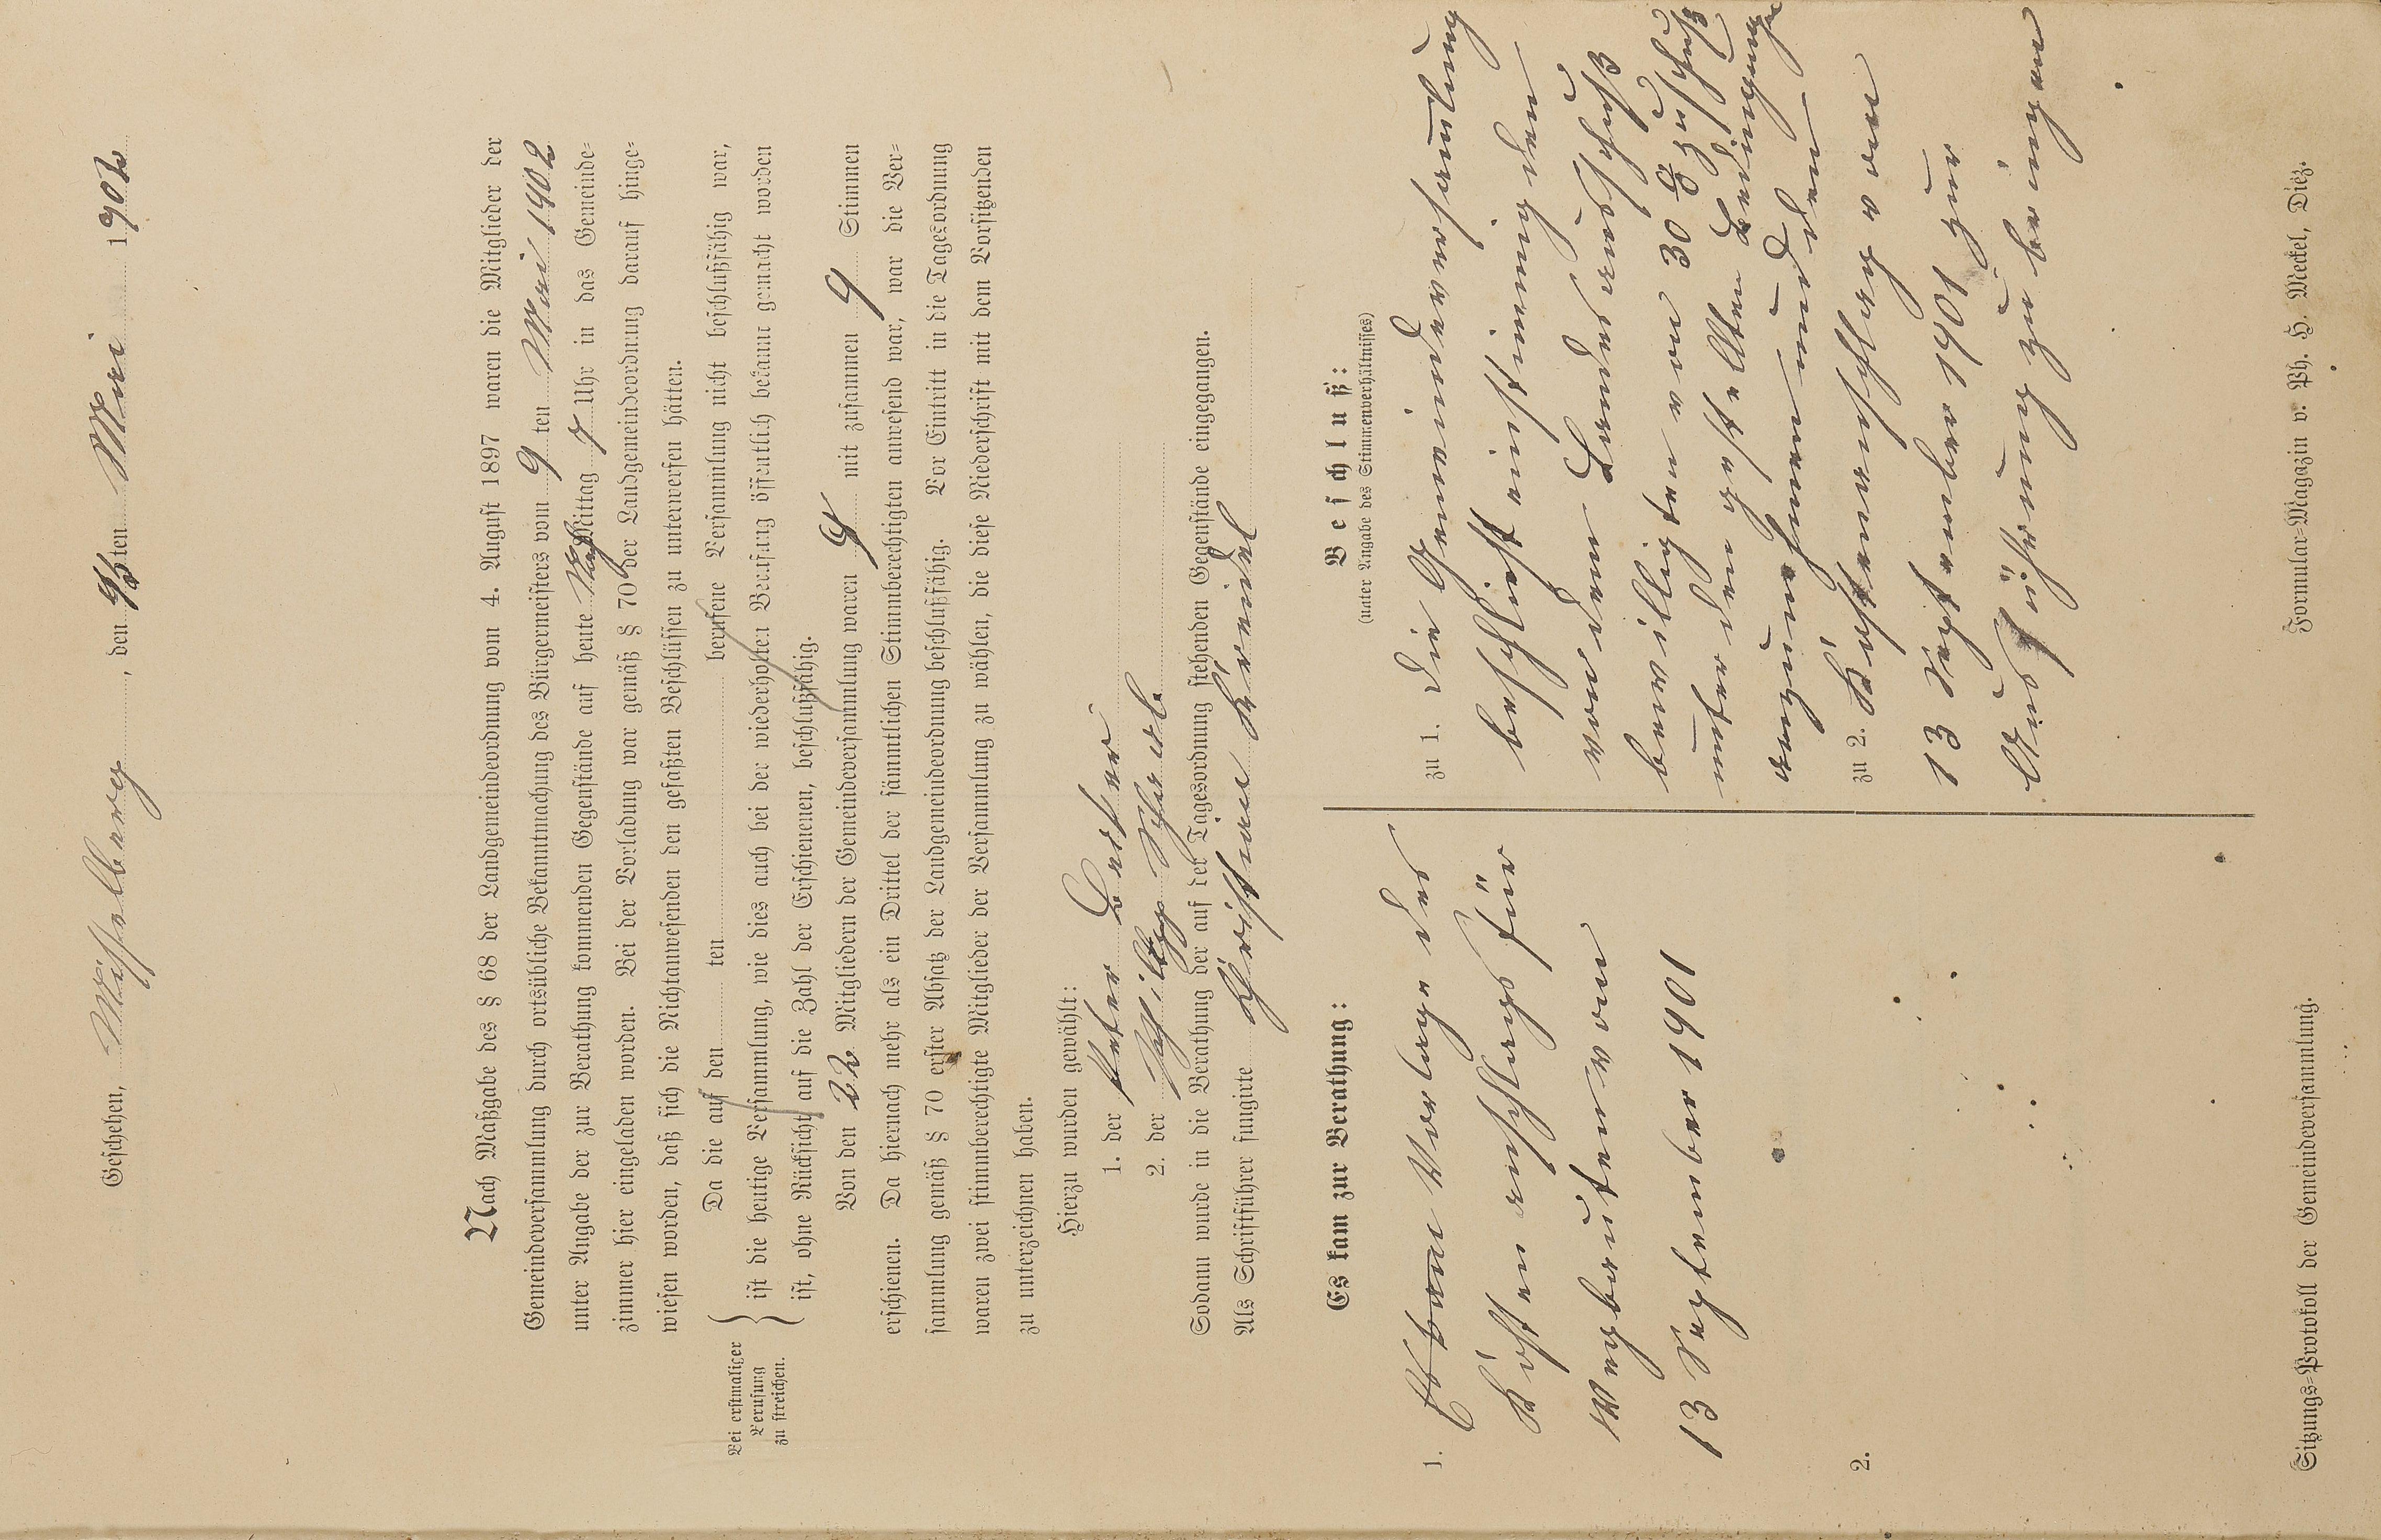 Geschehen, Misselberg, den 12ten Mai 1902
Nach Maßgabe des § 68 der Landgemeindeordnung vom 4. August 1897 waren die Mitglieder der
Gemeindeversammlung durch ortsübliche Bekanntmachung des Bürgermeisters vom 9 ten Mai 1902
unter Angabe der zur Berathung kommenden Gegenstände auf heute Nachmittag 7 Uhr in das Gemeinde-
zimmer hier eingeladen worden. Bei der Vorladung war gemäß § 70 der Landgemeindeordnung darauf hinge-
wiesen worden, daß sich die Nichtanwesenden den gefaßten Beschlüssen zu unterwerfen hätten.
Bei erstmaliger
Berufung
zu streichen.
Da die auf den ten berufene Versammlung nicht beschlußfähig war,
ist die heutige Versammlung, wie dies auch bei der wiederholten Berufung öffentlich bekannt gemacht worden
ist, ohne Rücksicht auf die Zahl der Erschienenen, beschlußfähig.
Von den 22 Mitgliedern der Gemeindeversammlung waren 9 mit zusammen 9 Stimmen
erschienen. Da hiernach mehr als ein Drittel der sämmtlichen Stimmberechtigten anwesend war, war die Ver-
sammlung gemäß § 70 erster Absatz der Landgemeindeordnung beschlußfähig. Vor Eintritt in die Tagesordnung
waren zwei stimmberechtigte Mitglieder der Versammlung zu wählen, die diese Niederschrift mit dem Vorsitzenden
zu unterzeichnen haben.
Hierzu wurden gewählt:
1. der Peter
2. der Philipp
Sodann wurde in die Berathung der auf der Tagesordnung stehenden Gegenstände eingegangen.
Als Schriftführer fungirte Christian
Es kam zur Berathung:
1. Vorlage des
Kosten anschlags für
Wegbauten vom
13 September 1901
2.
Beschluß:
(unter Angabe des Stimmenverhältnisses)
zu 1. Die Gemeindeversammlung
beschließt einstimmig den
von dem
bewilligten von 30 % zuschuß
unter den gestellten Bedingungen
anzunehmen und den
zu 2. Kostenanschlag vom
13 September 1901 zur
Ausführung zu bringen
Sitzungs-Protokoll der Gemeindeversammlung.
Formular-Magazin v. Ph. H. Meckel, Diez.